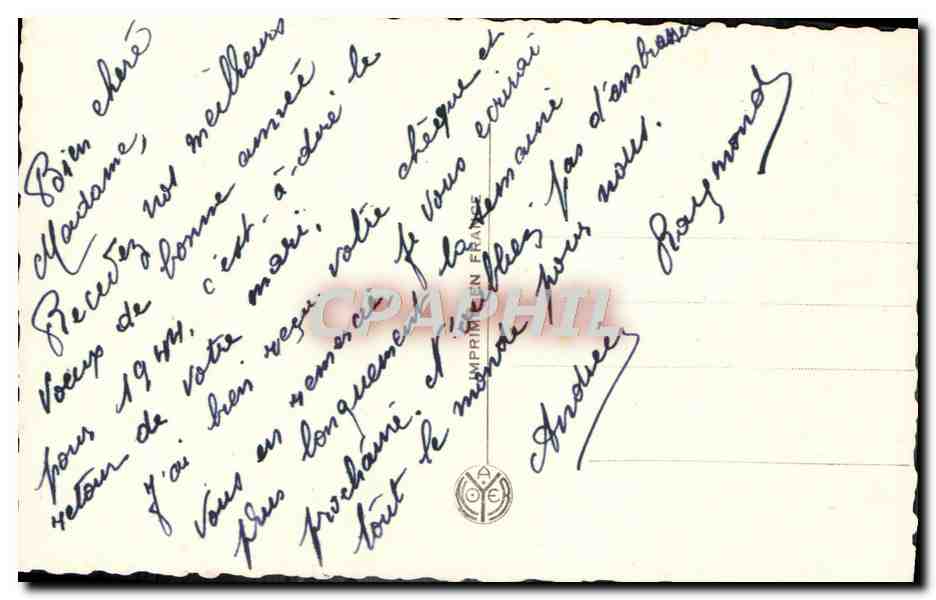 Bien cheré
Madame,
Recevez nos meilheurs
voeux de bonne année
pour 1944. c'est à-diré le
retour de votre mari.
J'ai bien reçu votre chèque et
vous en remercie je vous ecrirai
plus longuement la semaine
prochainé. N'oubliez pas d'embrasser
tout le monde pour nous.
Andrée Raymond
IMPRIMÉ EN FRANCE
YA OE
CPAPHIL